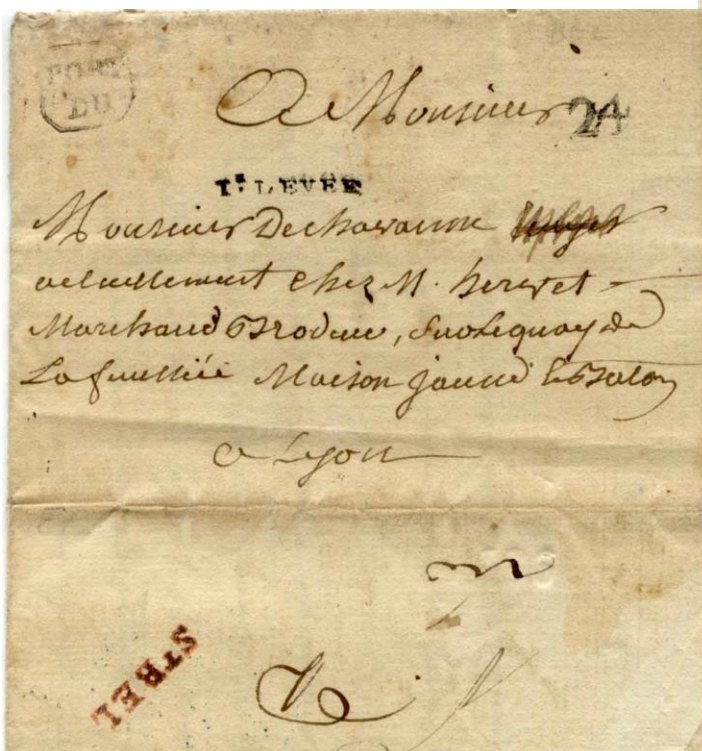 PORT
DU
A Monsieur
24
1e LEVEE
Monsieur Dechavanne
actuellement chez M. hervet
Marchand Brodeur, sur le quay de
La Maison jaune
a Lyon
STREL